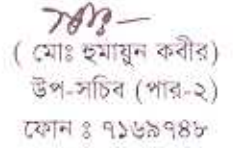 ( মোঃ হুমায়ুন কবীর)
উপ-সচিব (পার-২)
ফোন ঃ ৭১৬৯৭৪৮